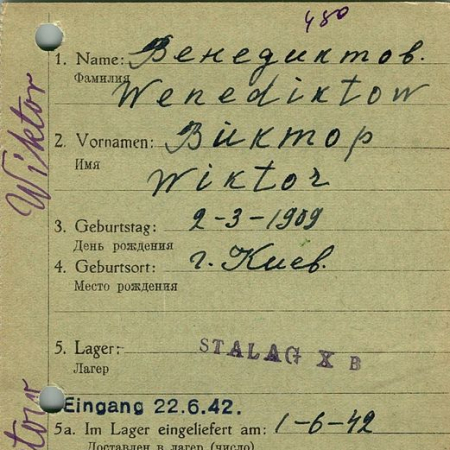 480
1. Name: Венедиктов.
Фамилия
Wenediktow
2. Vornamen: Виктор
Имя
Wiktor
Wiktor
3. Geburtstag: 2-3-1909
День рождения
4. Geburtsort: г. Киев.
Место рождения
5. Lager:
STALAG X B
Лагерь
Eingang 22.6.42.
5a. Im Lager eingeliefert am: 1-6-42
Доставлен в лагерь (число)
tow